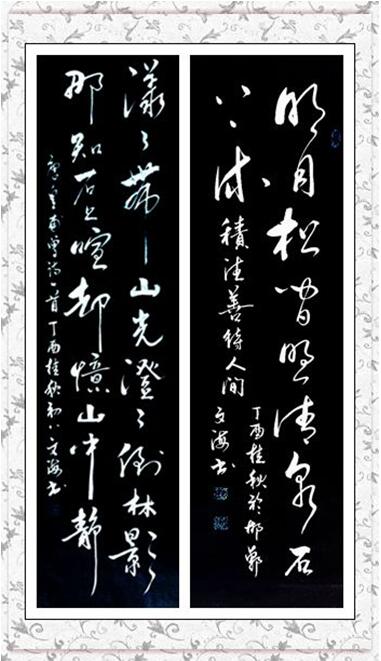 明月松間照清泉石
上流
積德善待人间
丁酉桂秋於邯鄲
文海书
漾々帶山光澄々倒林影
那知石上喧却憶山中静
唐皇甫曾詩一首丁酉桂秋初八文海书